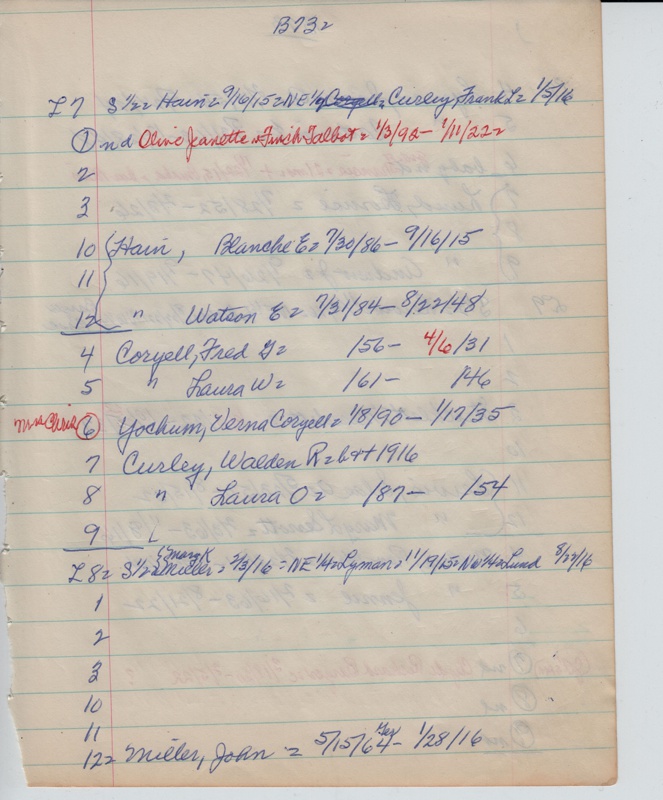 B73=
L7 S½= Hain= 9/16/15=NE¼ Coryell= Curley, Frank L= 1/5/16
① nd Olive Jeanette Finch Talbot= 1/3/92- 1/11/22=
2
3
10 Hain, Blanche E= 7/30/86- 9/16/15
11
12 " Watson E= 7/31/84- 8/22/48
4 Coryell, Fred G= /56- 4/6/31
5 " Laura W= /61- /46
Mrs Chris ⑥ Yochum, Verna Coryell= 1/8/90- 1/17/35
7 Curley, Walden R=b++ 1916
8 " Laura O= /87- /54
9 L
L8= S½= Mary K Miller= 2/3/16=NE¼=Lyman=11/19/15=NW¼=Lund 8/22/16
1
2
3
10
11
12= Miller, John = 5/15/64- 1/28/16